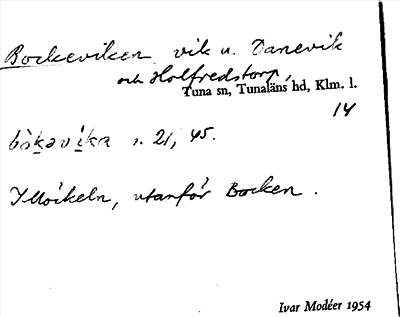 Bockeviken vik u. Danevik
och Holfredstorp,
Tuna sn, Tunaläns hd, Klm. l.
14
bòkavíka n. 21, 45.
I Möckeln, utanför Bocken.
Ivar Modéer 1954